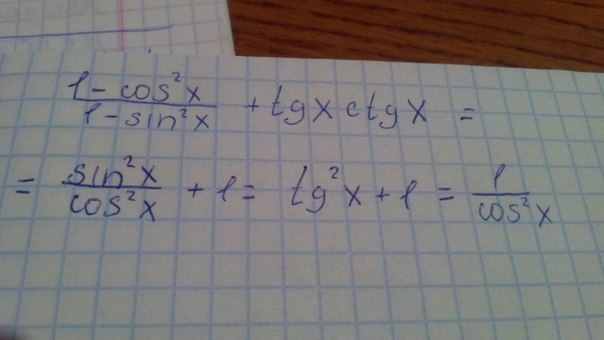 (1 - cos²x)/(1 - sin²x) + tgx ctgx =
= sin²x/cos²x + 1 = tg²x + 1 = 1/cos²x